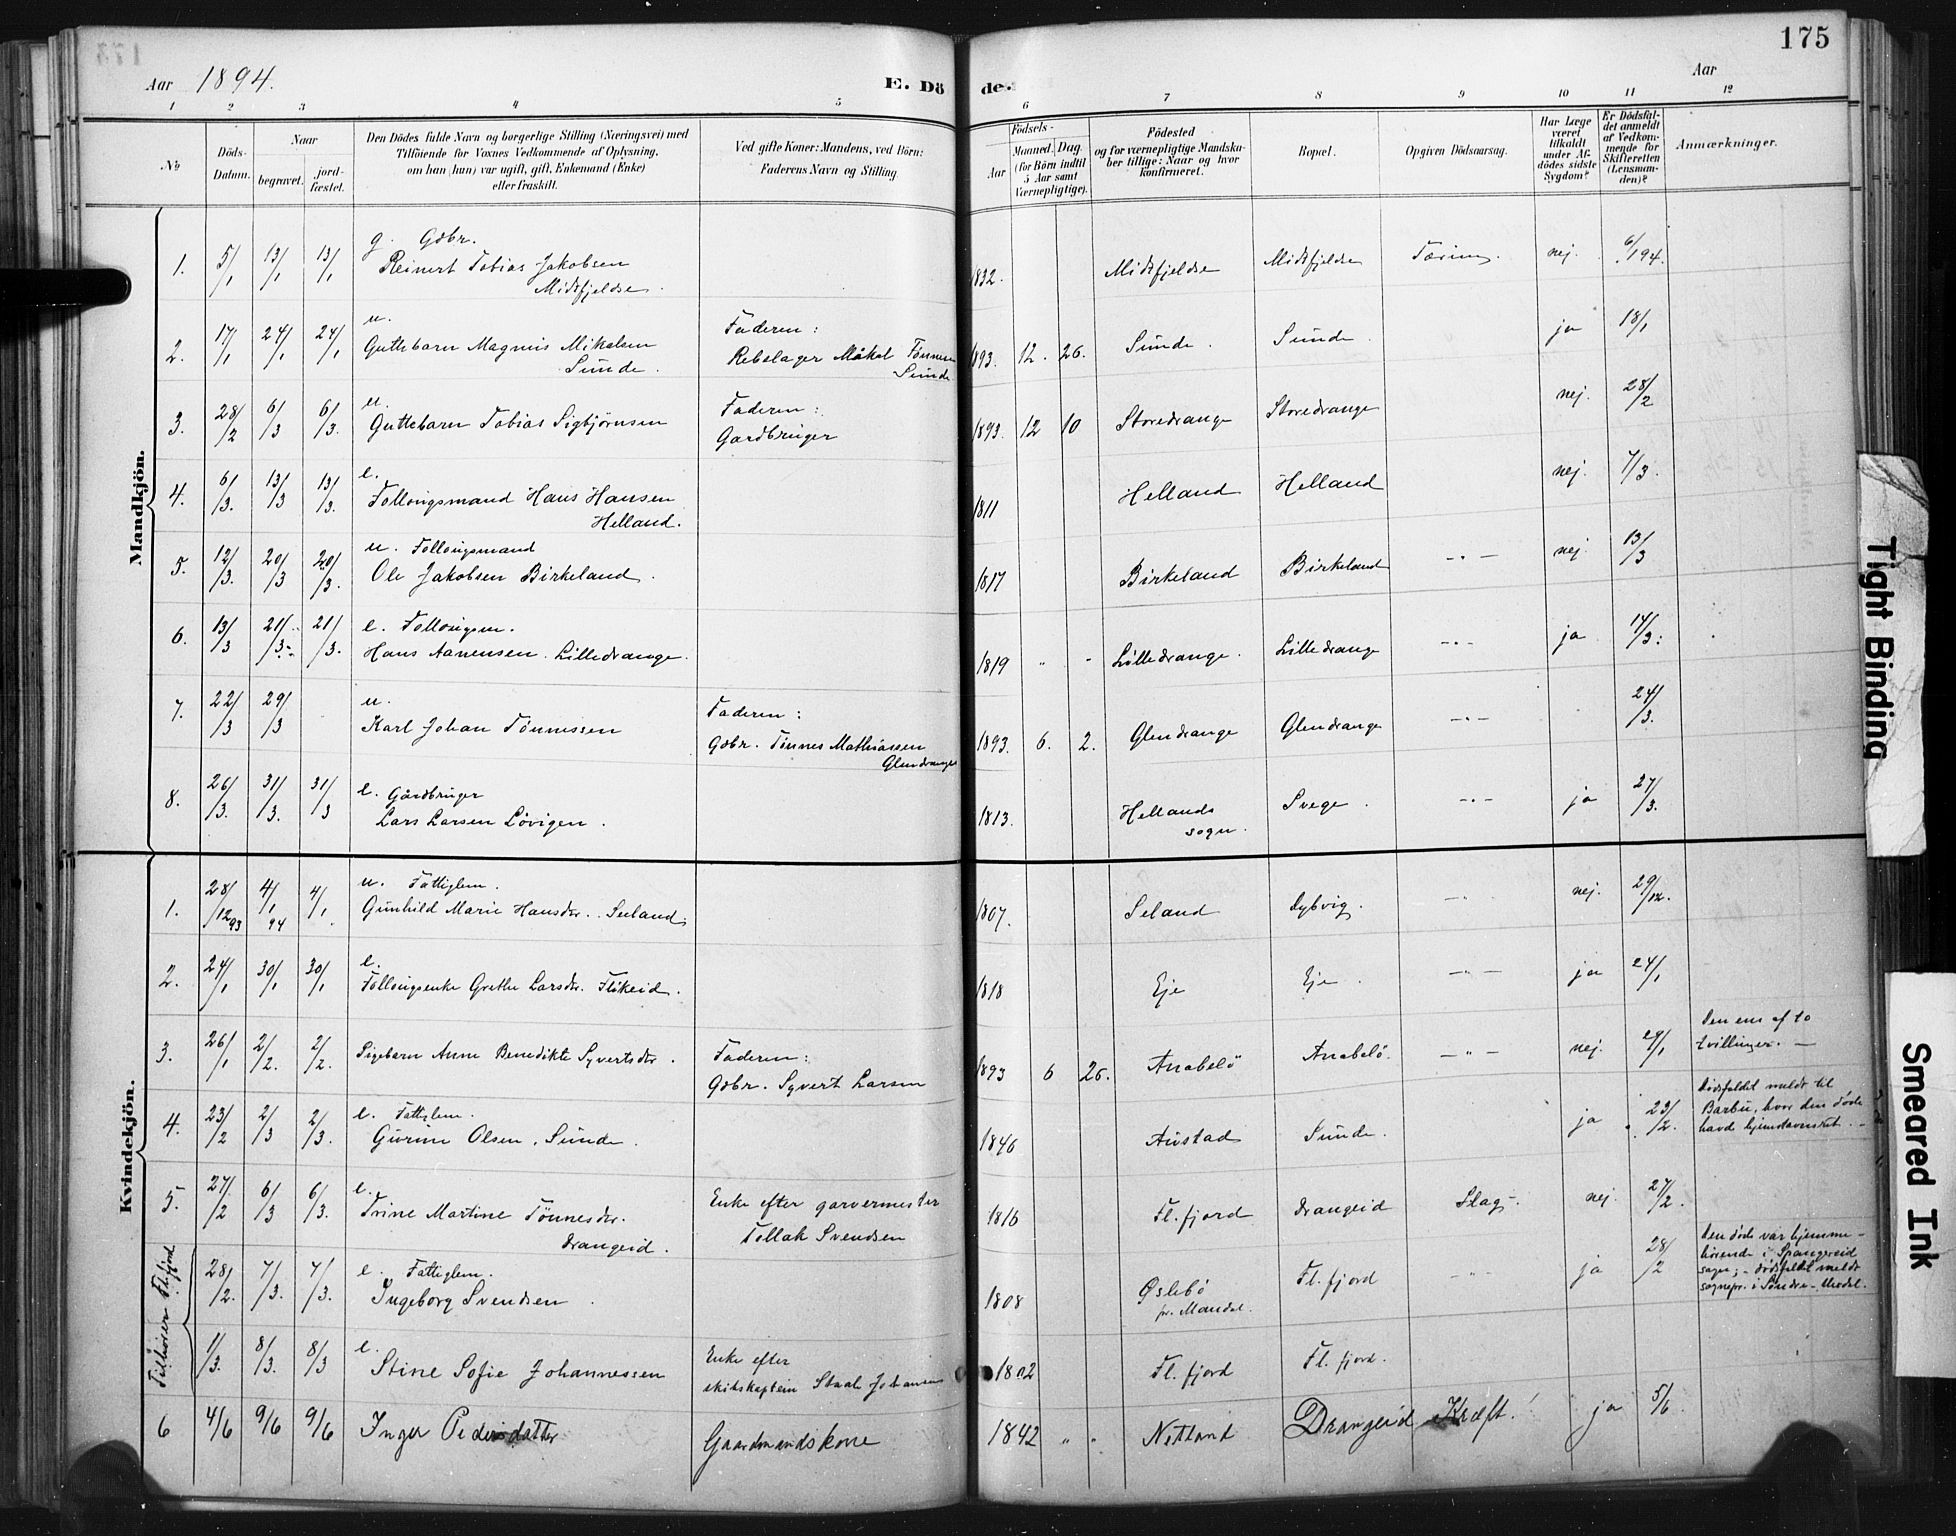 175
Aar 1894.
E. Dö de.
Aar
1 2 3 4 5 6 7 8 9 10 11 12
No
Döds-Datum.
Naar
begravet.
jord-fæstet.
Den Dödes fulde Navn og borgerlige Stilling (Næringsvei) med
Tilföiende for Voxnes Vedkommende af Oplysning.
om han (hun) var ugift, gift, Enkemand (Enke)
eller fraskilt.
Ved gifte Koner: Mandens, ved Börn:
Faderens Navn og Stilling.
Födsels-
Aar
Maaned. Dag.
(for Börn indtil
5 Aar samt
Værnepligtige).
Födested
og for værnepligtige Mandska-
ber tillige: Naar og hvor
konfirmeret.
Bopæl.
Opgiven Dödsaarsag.
Har Læge
været
tilkaldt
under Af-
dödes sidste
Sygdom?
Er Dödsfal-
det anmeldt
af Vedkom-
mende for
Skifteretten
(Lensman-
den)?
Anmærkninger.
Mandkjön.
1. 5/1 13/1 13/1 g. Gdbr.
Reinert Tobias Jakobsen
Midtfjeldse. 1832. Midtfjeldse Midtfjeldse Tæring. nej. 6/1 94.
2. 17/1 24/1 24/1 u.
Guttebarn Magnus Mikalsen
Sunde. Faderen:
Rebslager Mikal Tönnesen
Sunde 1893. 12. 26. Sunde. Sunde. ja 18/1
3. 28/2 6/3 6/3. u.
Guttebarn Tobias Sigbjørnsen Faderen:
Gardbruger 1893. 12 10 Storedrange Storedrange nej. 28/2
4. 6/3. 13/3 13/3. e.
Follougsmand Hans Hansen
Helland. 1811 Helland Helland nej. 7/3.
5. 12/3. 20/3 20/3. u. Follougsmand
Ole Jakobsen Birkeland. 1817 Birkeland Birkeland -"- nej. 13/3
6. 13/3 21/3. 21/3. e. Follougsm.
Hans Aanensen Lilledrange. 1819 " " Lilledrange. Lilledrange -"- ja 14/3.
7. 22/3 29/3 u.
Karl Johan Tönnessen Faderen:
Gdbr. Tönnes Mathiassen
Glendrange 1893. 6. 2. Glendrange Glendrange -"- 24/3.
8. 26/3. 31/3. 31/3 e. Gårdbruger
Lars Larsen Lövigen. 1813. Hellands
sogn. Svege. -"- ja 27/3.
Kvindekjön.
1. 28/12 93 4/1 94 4/1. u. Fattiglem.
Gunhild Marie Hansdtr. Seeland. 1807. Seland Dybvig. -"- nej. 29/12.
2. 24/1 30/1 30/1 e.
Follougsenke Grethe Larsdtr. Flikeid. 1818 Eje Eje. -"- ja 24/1
3. 26/1 2/2. 2/2. Pigebarn Anne Benedikte Syvertsdtr. Faderen:
Gdbr. Syvert Larsen 1893 6 26. Anabelö Anabelö. -"- nej. 29/1 Den ene af to
tvillinger. -
4. 23/2 2/3 2/3. e. Fattiglem.
Gurine Olsen, Sunde. 1846 Austad Sunde. ja 23/2. Dødsfaldet meldt til
Barbu, hvor den døde
havde hjemstavnsret. -
5. 27/2 6/3 6/3. e.
Trine Martine Tönnesdtr.
Drangeid. Enke efter garvermester
Tellak Svendsen 1816 Fl. fjord Drangeid Slag. nej. 27/2.
Tilhører Fl. fjord
28/2. 7/3. 7/3. e. Fattiglem.
Ingeborg Svendsen 1808 Øslebö
pr. Mandal. Fl. fjord -"- ja 28/2 Den døde var hjemme-
hörende i Spangereid
sogn; - dödsfaldet meldt
sognepr. i Söndre-Undal.
1/3. 8/3. 8/3 e.
Stine Sofie Johannessen Enke efter
skibskaptein Staal Johansen 1802 Fl. fjord Fl. fjord.
6 4/6 9/6 9/6 Inger Pedersdatter Gaardmandskone 1842 " " Netland Drangeid Kræft. ja 5/6
Tight Binding
Smeared Ink